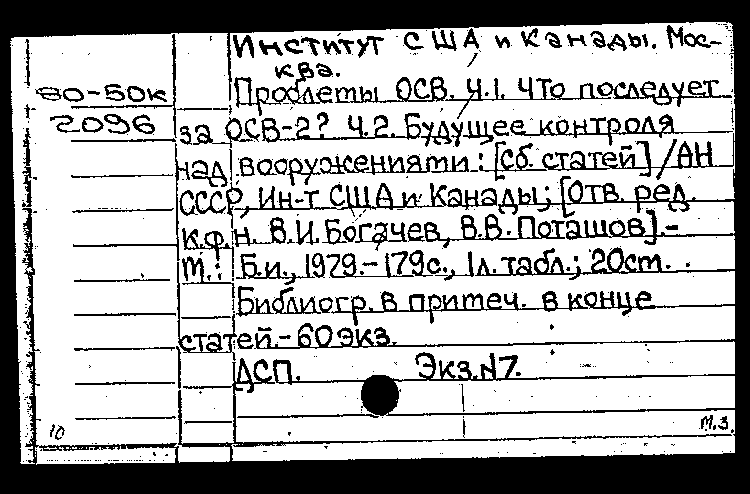 Институт США и Канады. Мос-
ква.
80-50к Проблемы ОСВ. Ч.1. Что последует
2096 за ОСВ-2? Ч.2. Будущее контроля
над вооружениями: [Сб. статей] / АН
СССР, Ин-т США и Канады; [Отв. ред.
к.ф.н. В.И. Богачев, В.В. Поташов].-
М.: Б.и., 1979.-179с., 1л. табл.; 20см.
Библиогр. в примеч. в конце
статей.-60 экз.
ДСП. Экз. №7.
10 М.З.